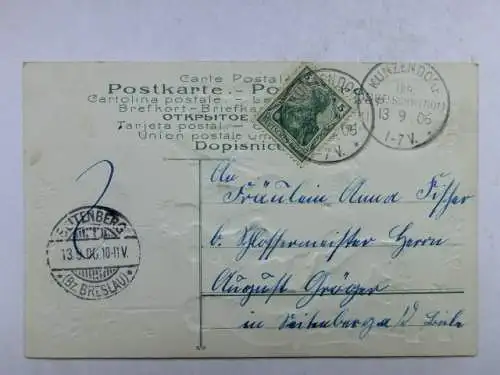 Carte Postal
Postkarte.-Po
Cartolina postale.-Le
Brefkort-Briefka
ОТКРЫТОЕ
Tarjeta postal.-C
Union postale un
Dopisnic
5 5
KUNZENDORF
13 9 06
1-7V.
06
7V.
SEITENBERG
13.9.06.10-11V.
(Bz. BRESLAU)
An
Fräulein Anna Fischer
b. Schlossermeister Herrn
August Gröger
in Seitenberg a/d Biele